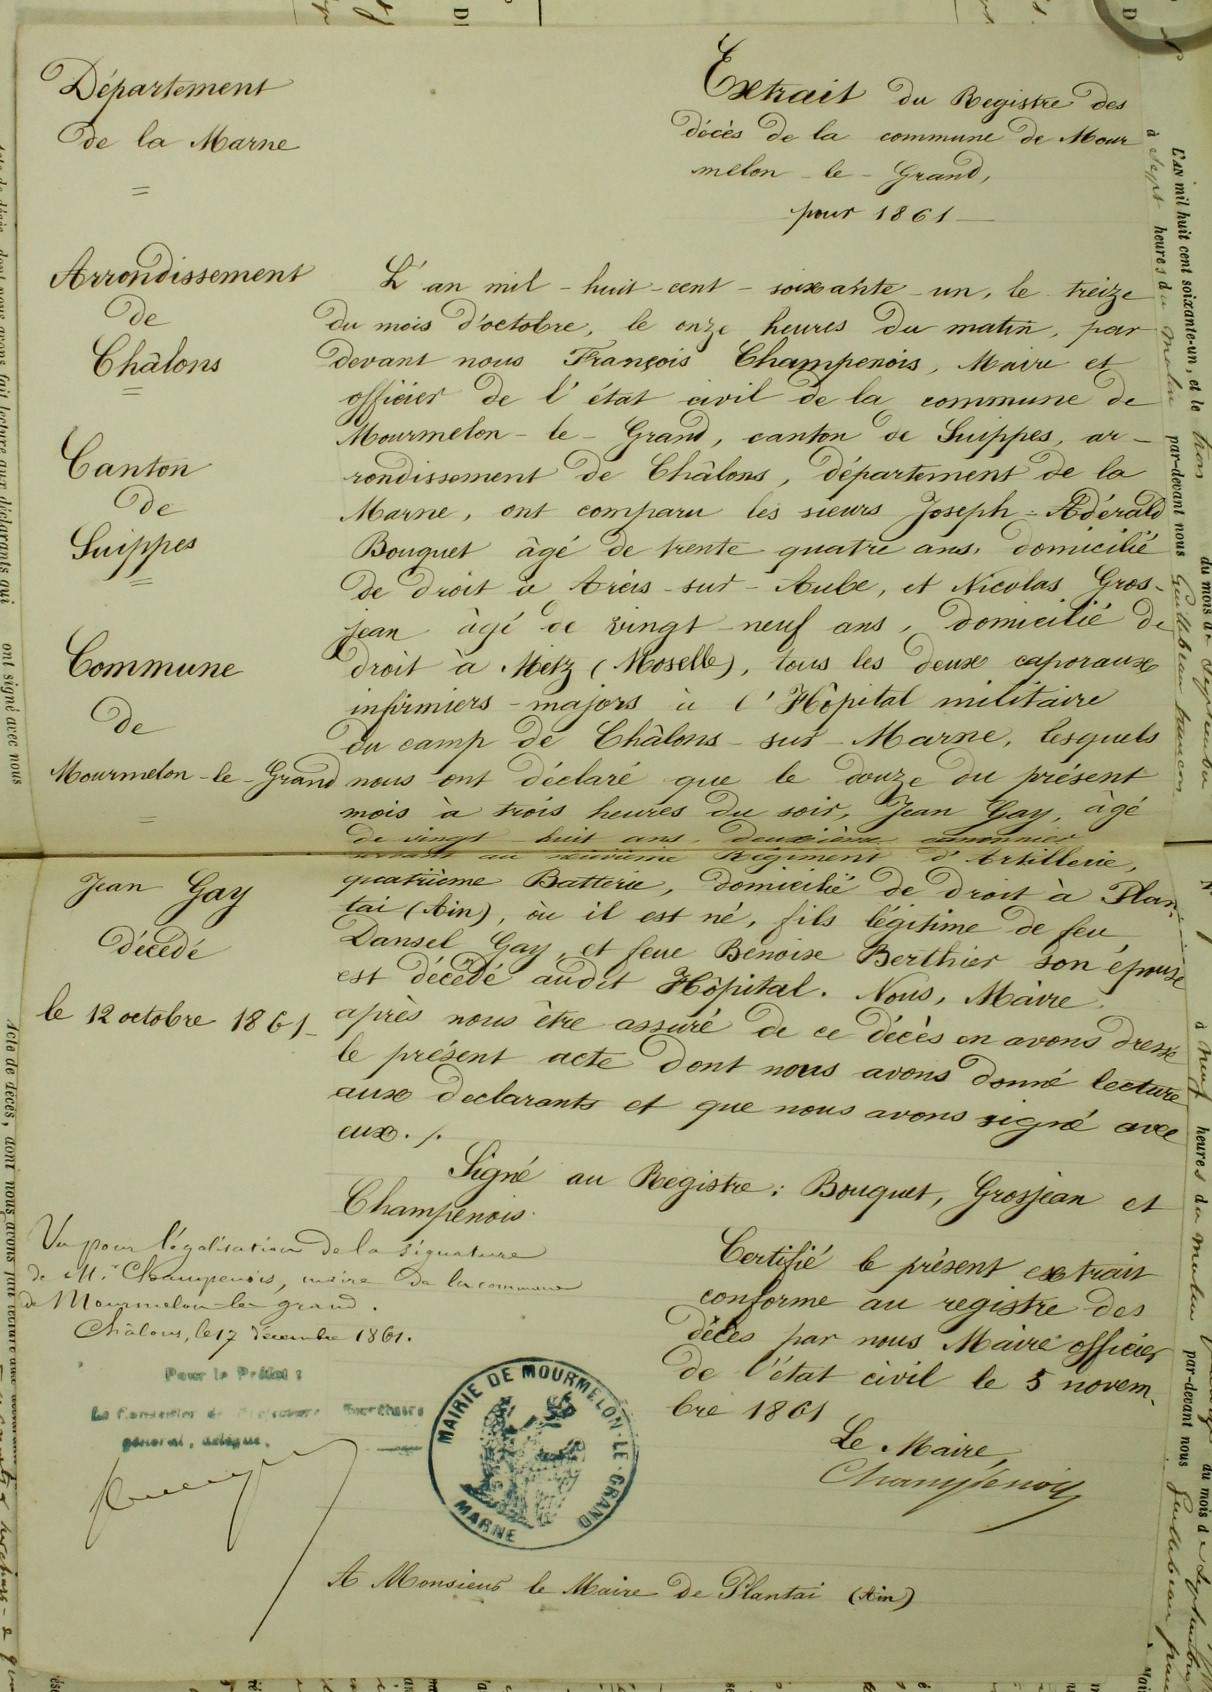 Département
de la Marne
=
Arrondissement
de
Châlons
=
Canton
de
Suippes
=
Commune
de
Mourmelon-le-Grand
=
Jean Gay
décédé
le 12 octobre 1861
Extrait du Registre des
décès de la commune de Mour
melon-le-Grand,
pour 1861
L'an mil-huit-cent-soixante-un, le treize
du mois d'octobre, le onze heures du matin, par
devant nous François Champenois, Maire et
officier de l'état civil de la commune de
Mourmelon-le-Grand, canton de Suippes, ar-
rondissement de Châlons, département de la
Marne, ont comparu les sieurs Joseph-Adérald
Bouquet âgé de trente quatre ans, domicilié
de droit à Arcis-sur-Aube, et Nicolas Gros-
jean âgé de vingt-neuf ans, domicilié de
droit à Metz (Moselle), tous les deux caporaux
infirmiers-majors à l'Hôpital militaire
du camp de Châlons-sur-Marne, lesquels
nous ont déclaré que le douze du présent
mois à trois heures du soir, Jean Gay, âgé
de vingt huit ans, deuxième canonnier
au Régiment d'Artillerie,
quatrième Batterie, domicilié de droit à Plan-
tai (Ain), où il est né, fils légitime de feu
Dansel Gay, et feue Benoise Berthier son épouse
est décédé audit Hôpital. Nous, Maire,
après nous être assuré de ce décès en avons dressé
le présent acte dont nous avons donné lecture
aux declarants et que nous avons signé avec
eux./.
Signé au Registre: Bouquet, Grosjean et
Champenois.
Certifié le présent extrait
conforme au registre des
décès par nous Maire officier
de l'état civil le 5 novem-
bre 1861
Le Maire,
Champenois
Vu pour légalisation de la signature
de Mr. Champenois, maire de la commune
de Mourmelon-le-grand.
Châlons, le 17 décembre 1861.
Pour le Préfet:
Le Conseiller de Préfecture Secrétaire
général, délégué,
MAIRIE DE MOURMELON-LE-GRAND
MARNE
A Monsieur le Maire de Plantai (Ain)
L'AN mil huit cent soixante-un, et le trois du mois de Septembre
à sept heures du matin par-devant nous
à neuf heures du matin par-devant nous
du mois de Septembre
ont signé avec nous
Acte de décès, dont nous avons fait lecture aux